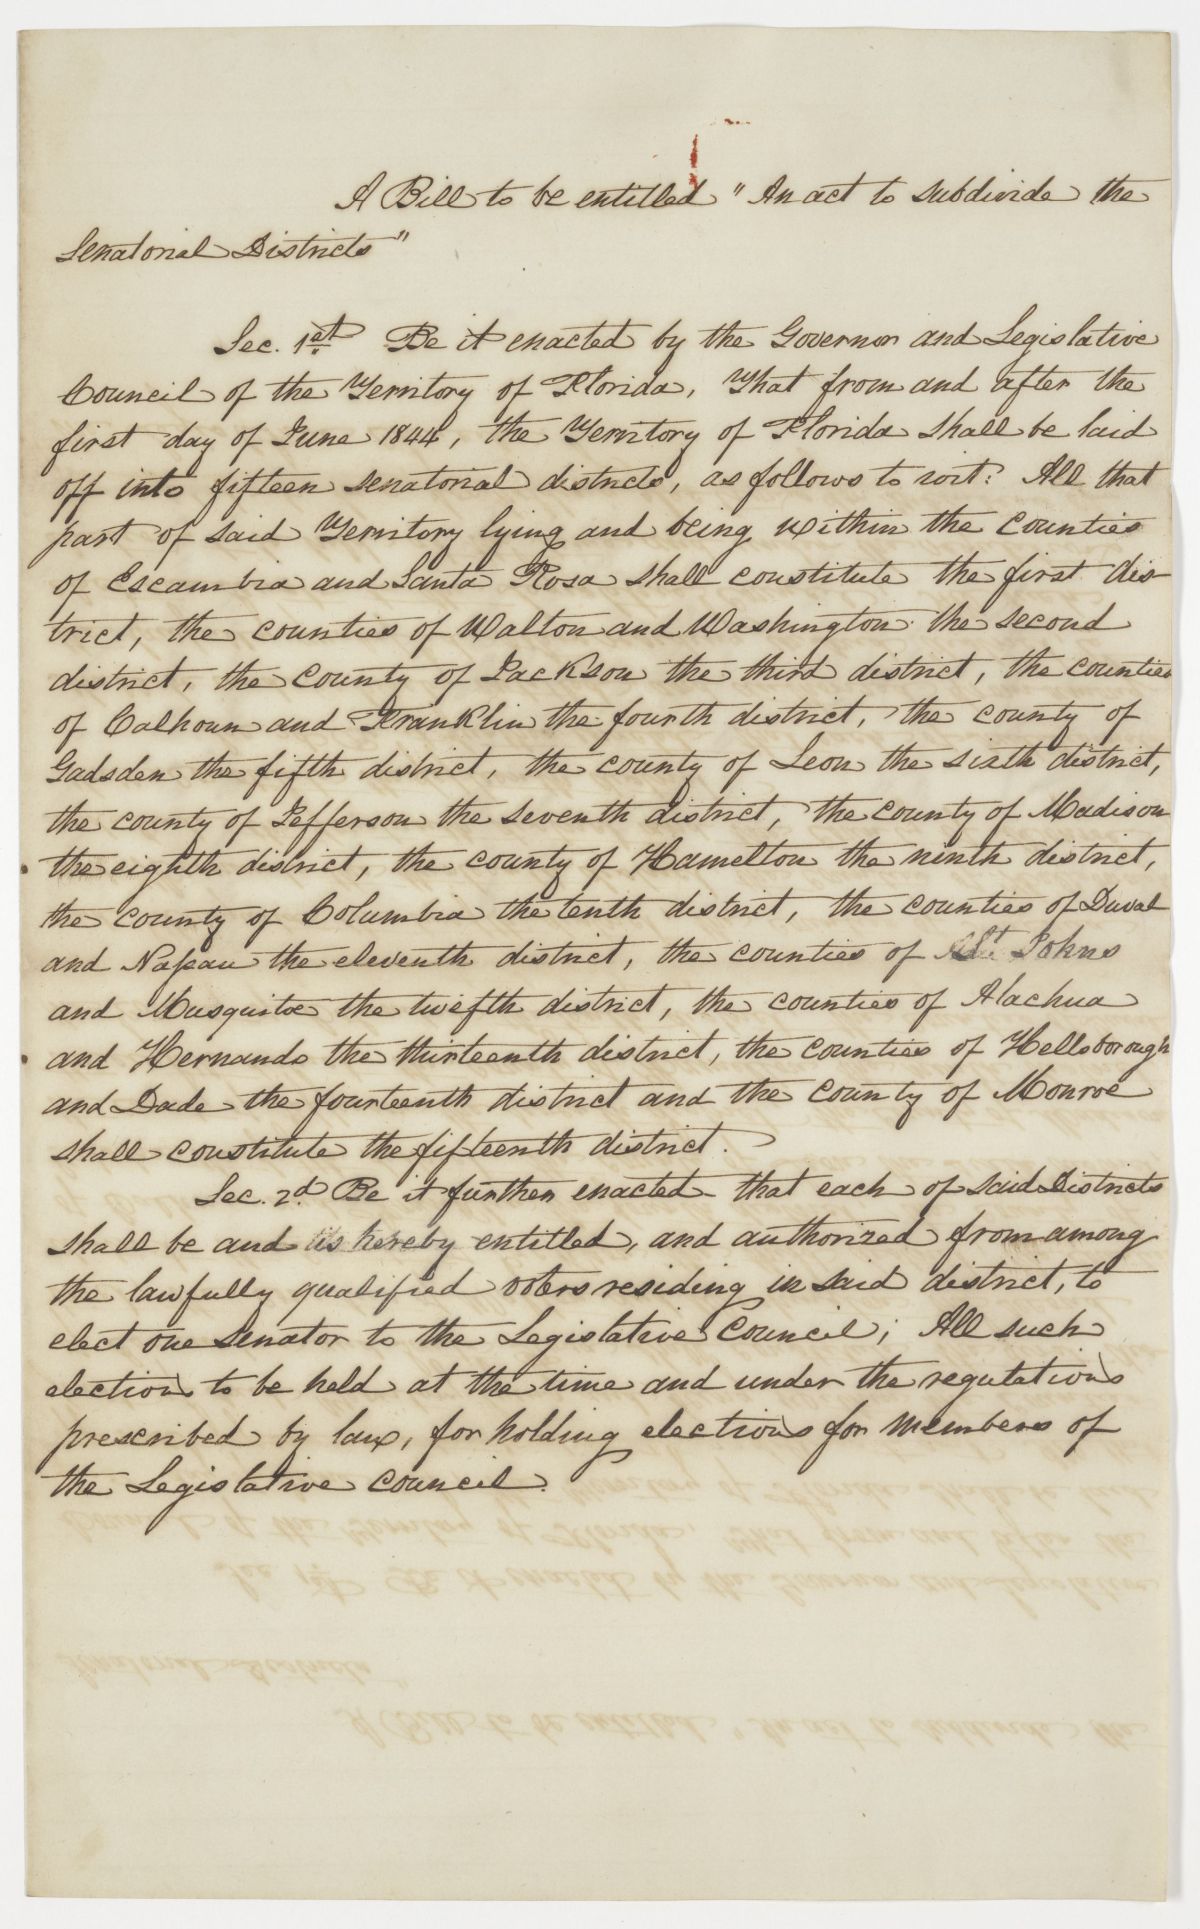 A Bill to be entitled "An act to subdivide the
Senatorial Districts"
Sec. 1st. Be it enacted by the Governor and Legislative
Council of the Territory of Florida, That from and after the
first day of June 1844, the Territory of Florida shall be laid
off into fifteen senatorial districts, as follows to wit: All that
part of said Territory lying and being within the counties
of Escambia and Santa Rosa shall constitute the first dis-
trict, the counties of Walton and Washington the second
district, the county of Jackson the third district, the counties
of Calhoun and Franklin the fourth district, the county of
Gadsden the fifth district, the county of Leon the sixth district,
the county of Jefferson the seventh district, the county of Madison
the eighth district, the county of Hamelton the ninth district,
the county of Columbia the tenth district, the counties of Duval
and Nassau the eleventh district, the counties of St Johns
and Musquitoe the twelfth district, the counties of Alachua
and Hernando the thirteenth district, the counties of Hellsborough
and Dade the fourteenth district and the county of Monroe
shall constitute the fifteenth district.
Sec. 2d. Be it further enacted that each of said Districts
shall be and is hereby entitled, and authorized from among
the lawfully qualified voters residing in said district, to
elect one senator to the Legislative Council; All such
elections to be held at the time and under the regulations
prescribed by law, for holding elections for members of
the Legislative council.